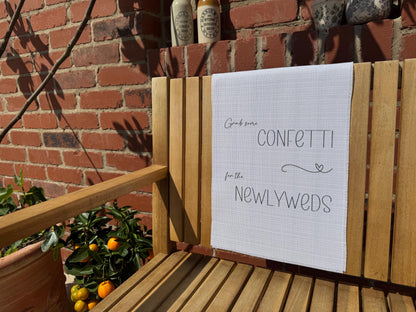 Grab some
CONFETTI
for the
NEWLYWEDS